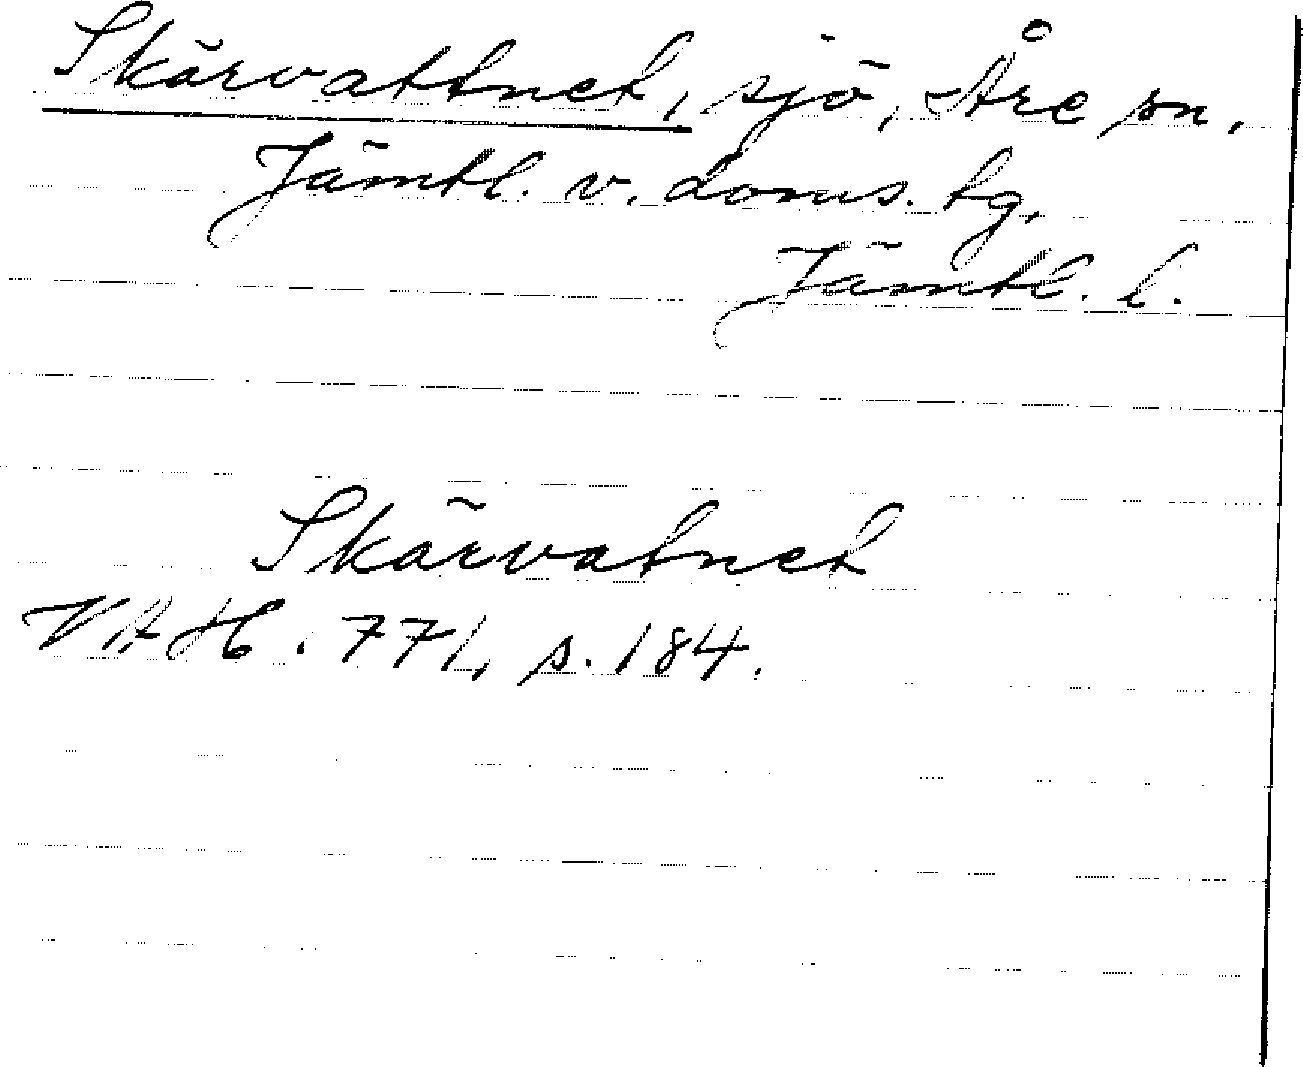 Skärvattnet, sjö, Åre sn,
Jämtl. v. doms. tg,
Jämtl. l.
Skärvatnet
VAH. 771, s. 184.